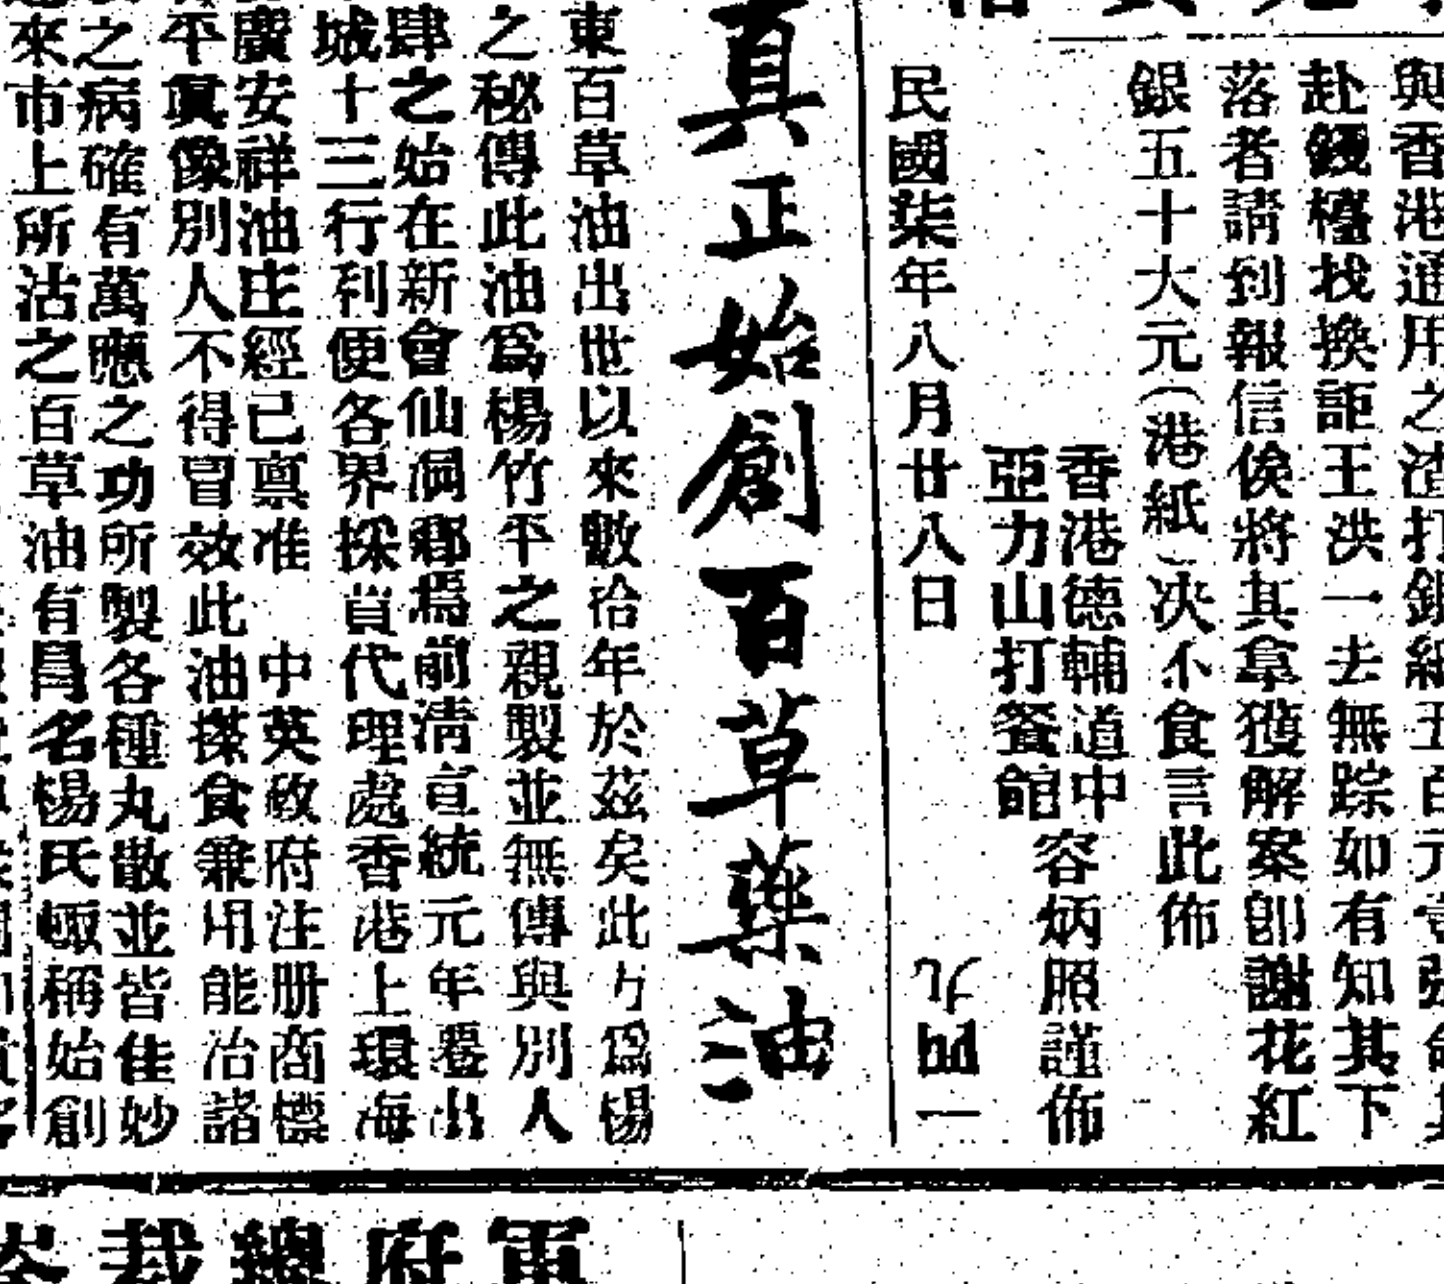 與香港通用之渣打銀紙五百元
赴錢檯找換詎王洪一去無踪如有知其下
落者請到報信俟將其拿獲解案即謝花紅
銀五十大元(港紙)决不食言此佈
香港德輔道中
亞力山打餐館
容炳照謹佈
民國柒年八月廿八日
真正始創百草藥油
東百草油出世以來數拾年於茲矣此方為楊
之秘傳此油為楊竹平之親製並無傳與別人
肆之始在新會仙洞鄉焉前清宣統元年遷出
城十三行利便各界採買代理處香港上環海
廣安祥油庄經已禀准 中英政府注册商標
平真像別人不得冒效此油搽食兼用能治諸
之病確有萬應之功所製各種丸散並皆佳妙
來市上所沽之百草油有冒名楊氏輙稱始創
軍府總裁